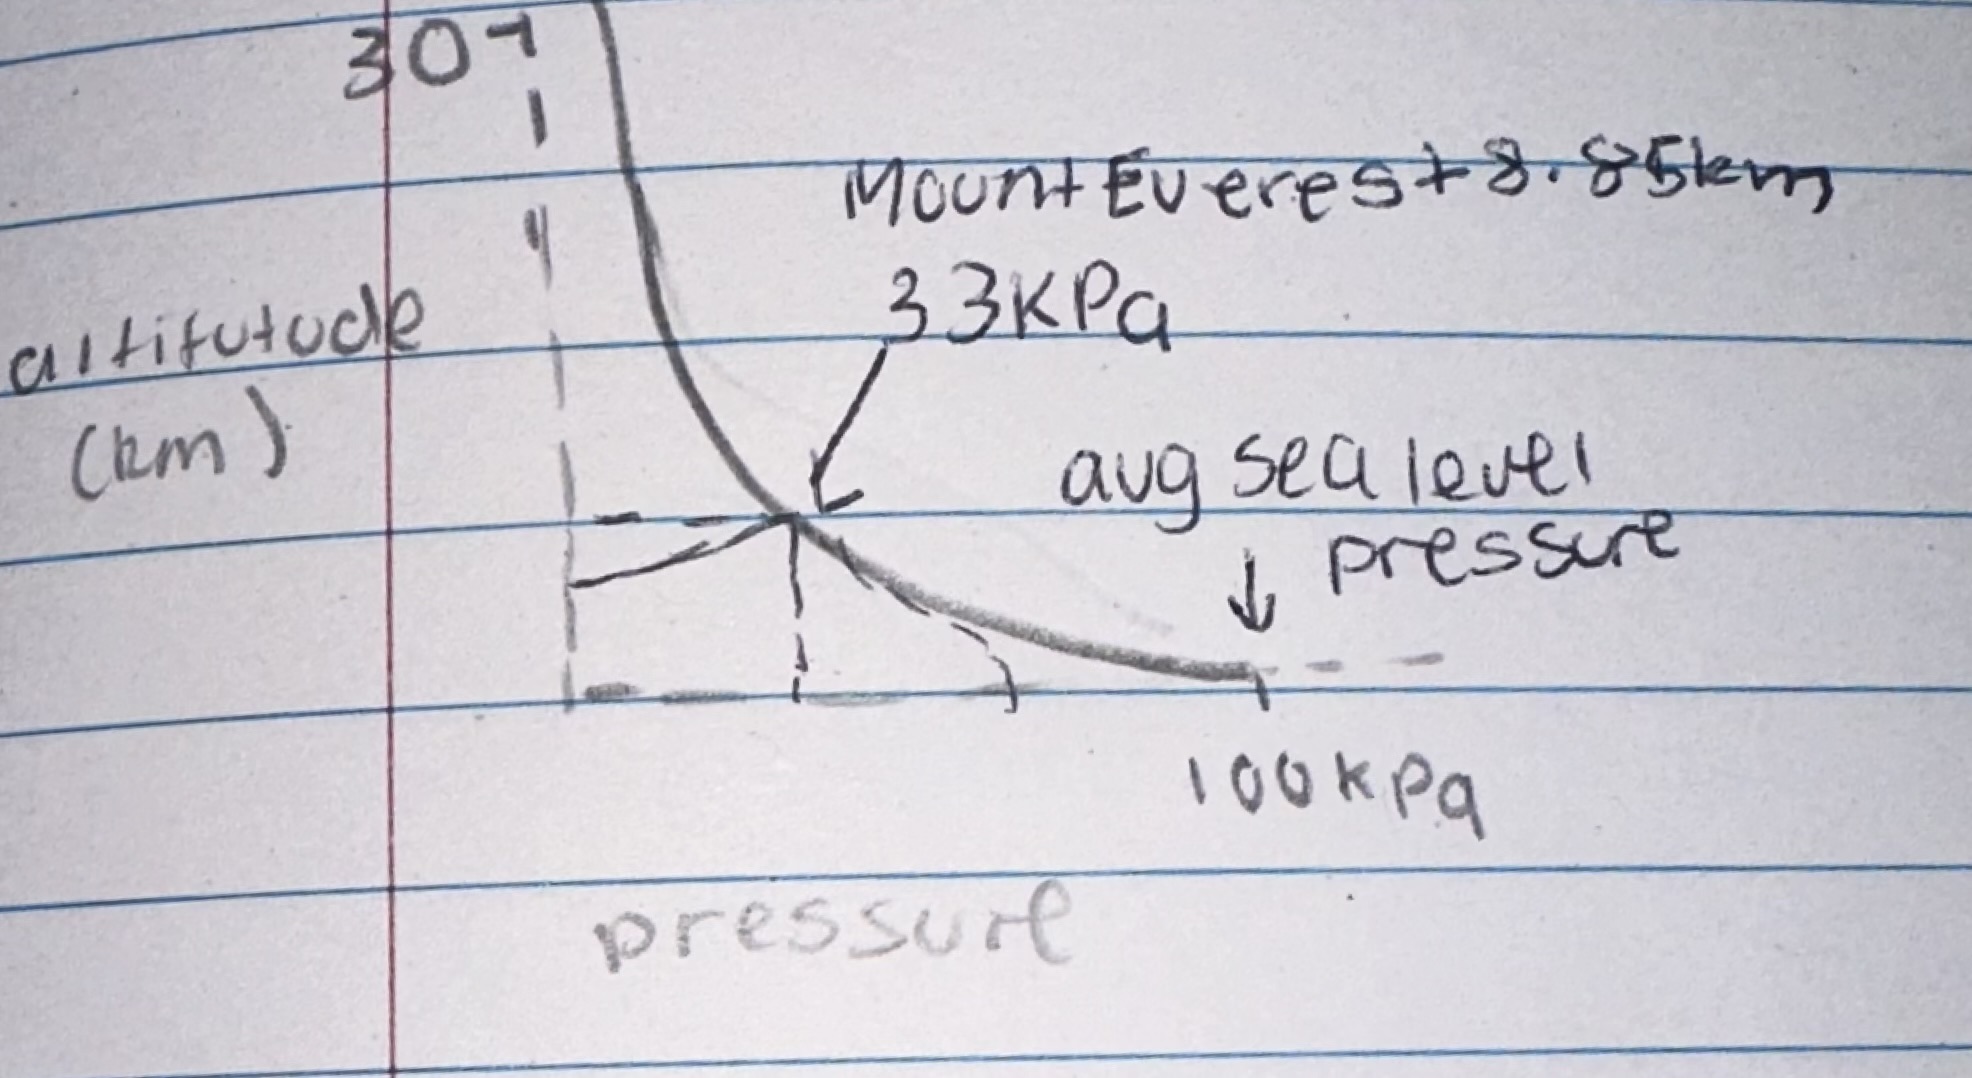 30
Mount Everest 8.85km
33kPa
altitutude
(km)
avg sea level
pressure
100kPa
pressure